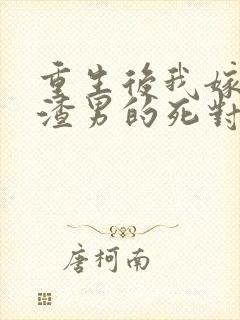 重生後我嫁
渣男的死對
唐柯南